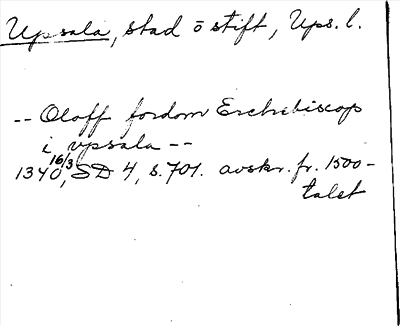 Upsala, stad o stift, Ups. l.
-- Oloff fordom Erchebiscop
i vpsala --
1340 16/3, SD 4, s. 701. avskr. fr. 1500-
talet